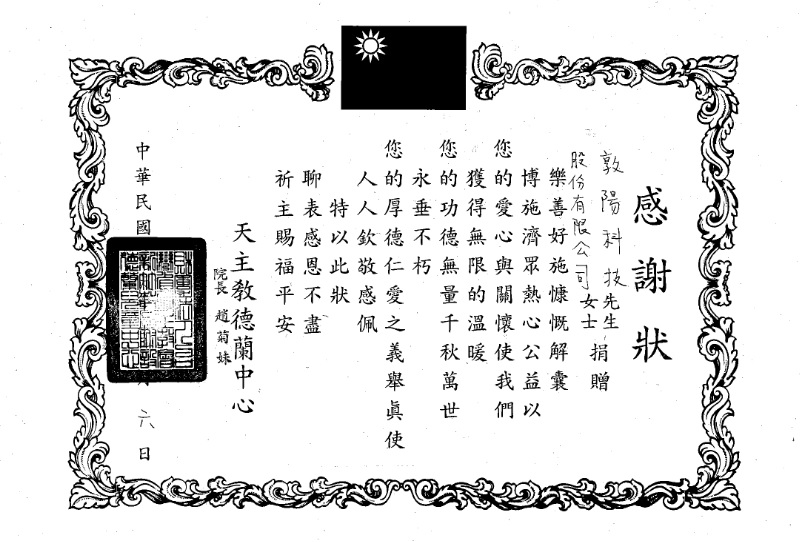 感謝狀
敦陽科技先生捐贈
股份有限公司女士
樂善好施慷慨解囊
博施濟眾熱心公益以
您的愛心與關懷使我們
獲得無限的溫暖
您的功德無量千秋萬世
永垂不朽
您的厚德仁愛之義舉眞使
人人欽敬感佩
特以此狀
聊表感恩不盡
祈主賜福平安
天主教德蘭中心
院長 趙菊妹
中華民國
六日